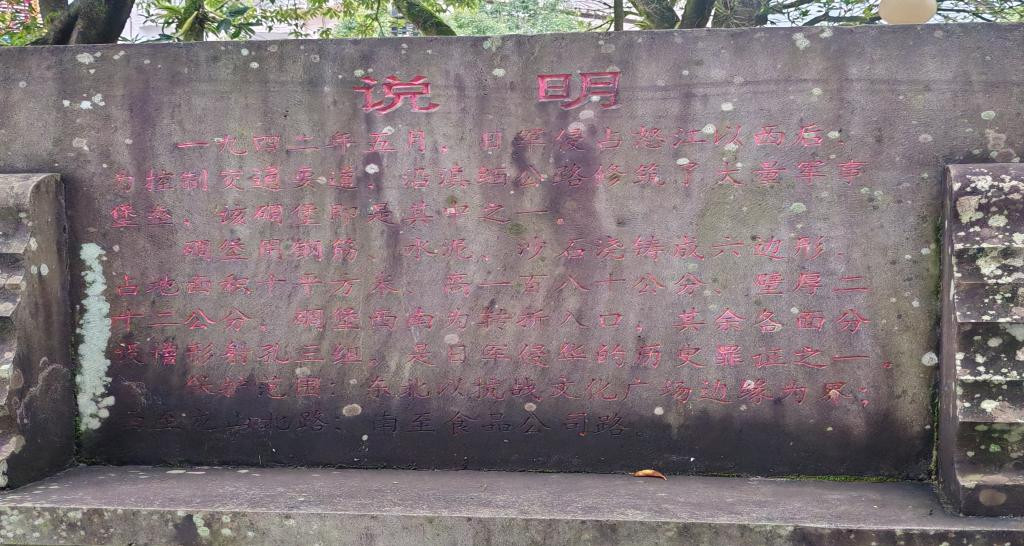 说明
一九四二年五月，日军侵占怒江以西后，
为控制交通要道，沿滇缅公路修筑了大量军事
堡垒，该碉堡即是其中之一。
碉堡用钢筋、水泥、沙石浇铸成六边形，
占地面积十平方米，高一百八十公分，壁厚二
十二公分，碉堡西南为转折入口，其余各面分
设槽形射孔三组，是日军侵华的历史罪证之一。
保护范围：东北以抗战文化广场边缘为界；
至龙山北路；南至食品公司路。